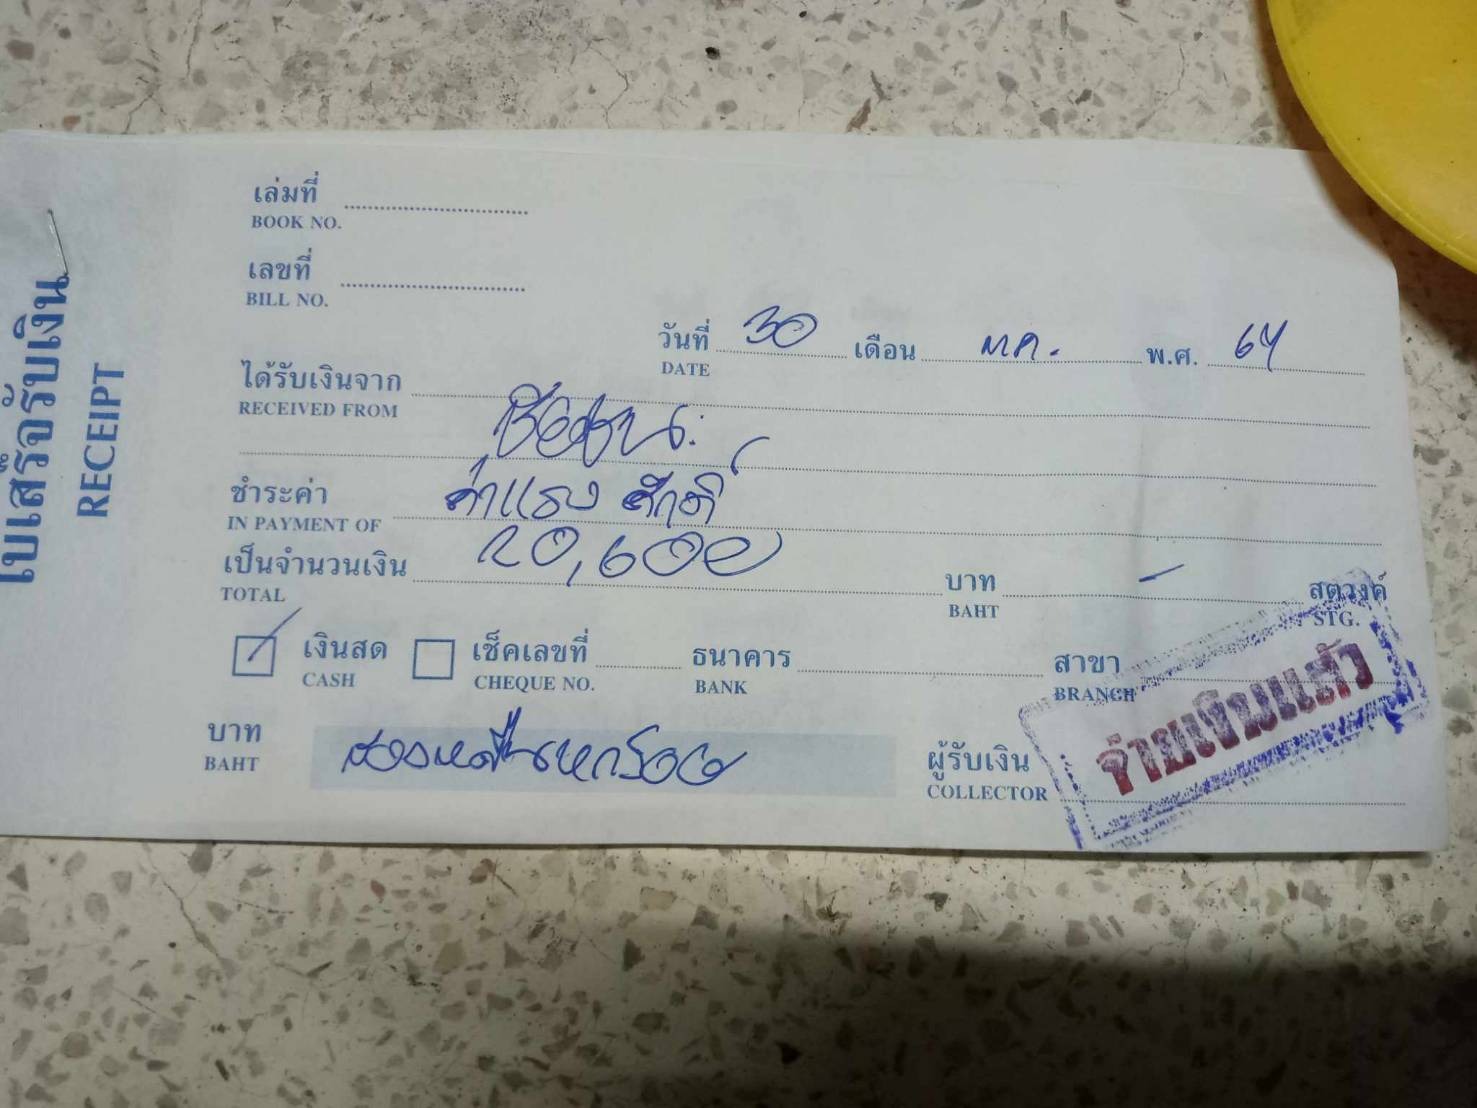 ใบเสร็จรับเงิน
RECEIPT
เล่มที่
BOOK NO.
เลขที่
BILL NO.
วันที่ 30 เดือน ตค. พ.ศ. 64
DATE
ได้รับเงินจาก
RECEIVED FROM
ชำระค่า ค่าแรง ศักดิ์
IN PAYMENT OF
เป็นจำนวนเงิน 20,600 บาท - สตางค์
TOTAL BAHT STG.
เงินสด เช็คเลขที่ ธนาคาร สาขา
CASH CHEQUE NO. BANK BRANCH
บาท สองหมื่นหกร้อย ผู้รับเงิน
BAHT COLLECTOR
จ่ายเงินแล้ว